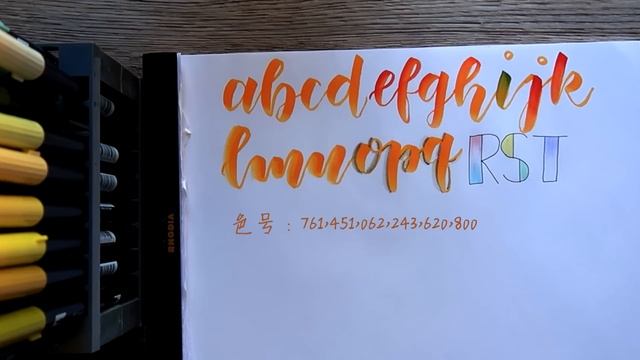 abcdefghijk
lmnopq RST
色号：761,451,062,243,620,800
RHODIA